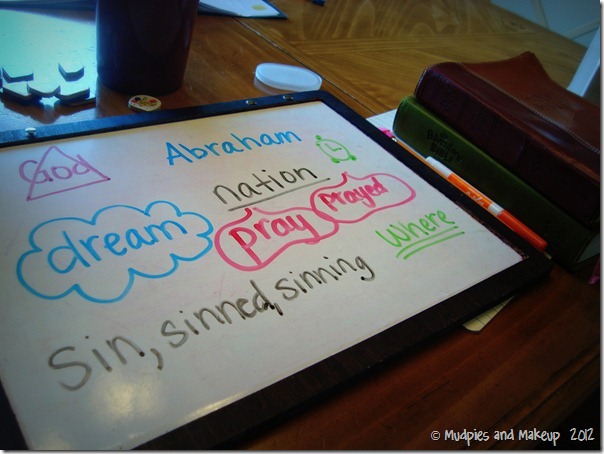 God
Abraham
nation
dream
pray prayed
where
Sin, sinned, sinning
© Mudpies and Makeup 2012